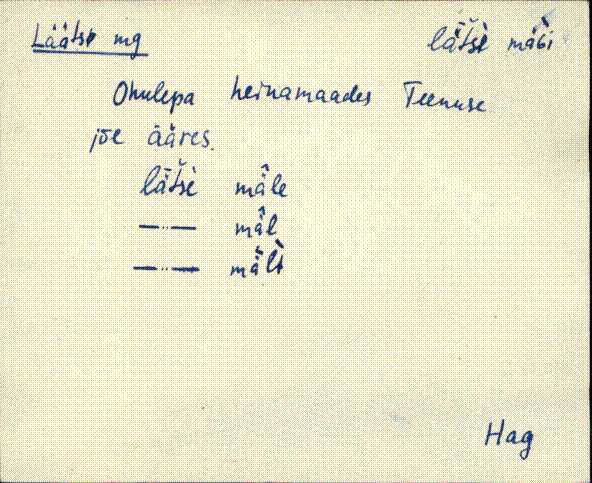 Läätse mg lät̀sè mäGì
Ohulepa heinamaades Teenuse
jõe ääres.
lät̀sè mäle
—..— mäl
—..— mält
Hag